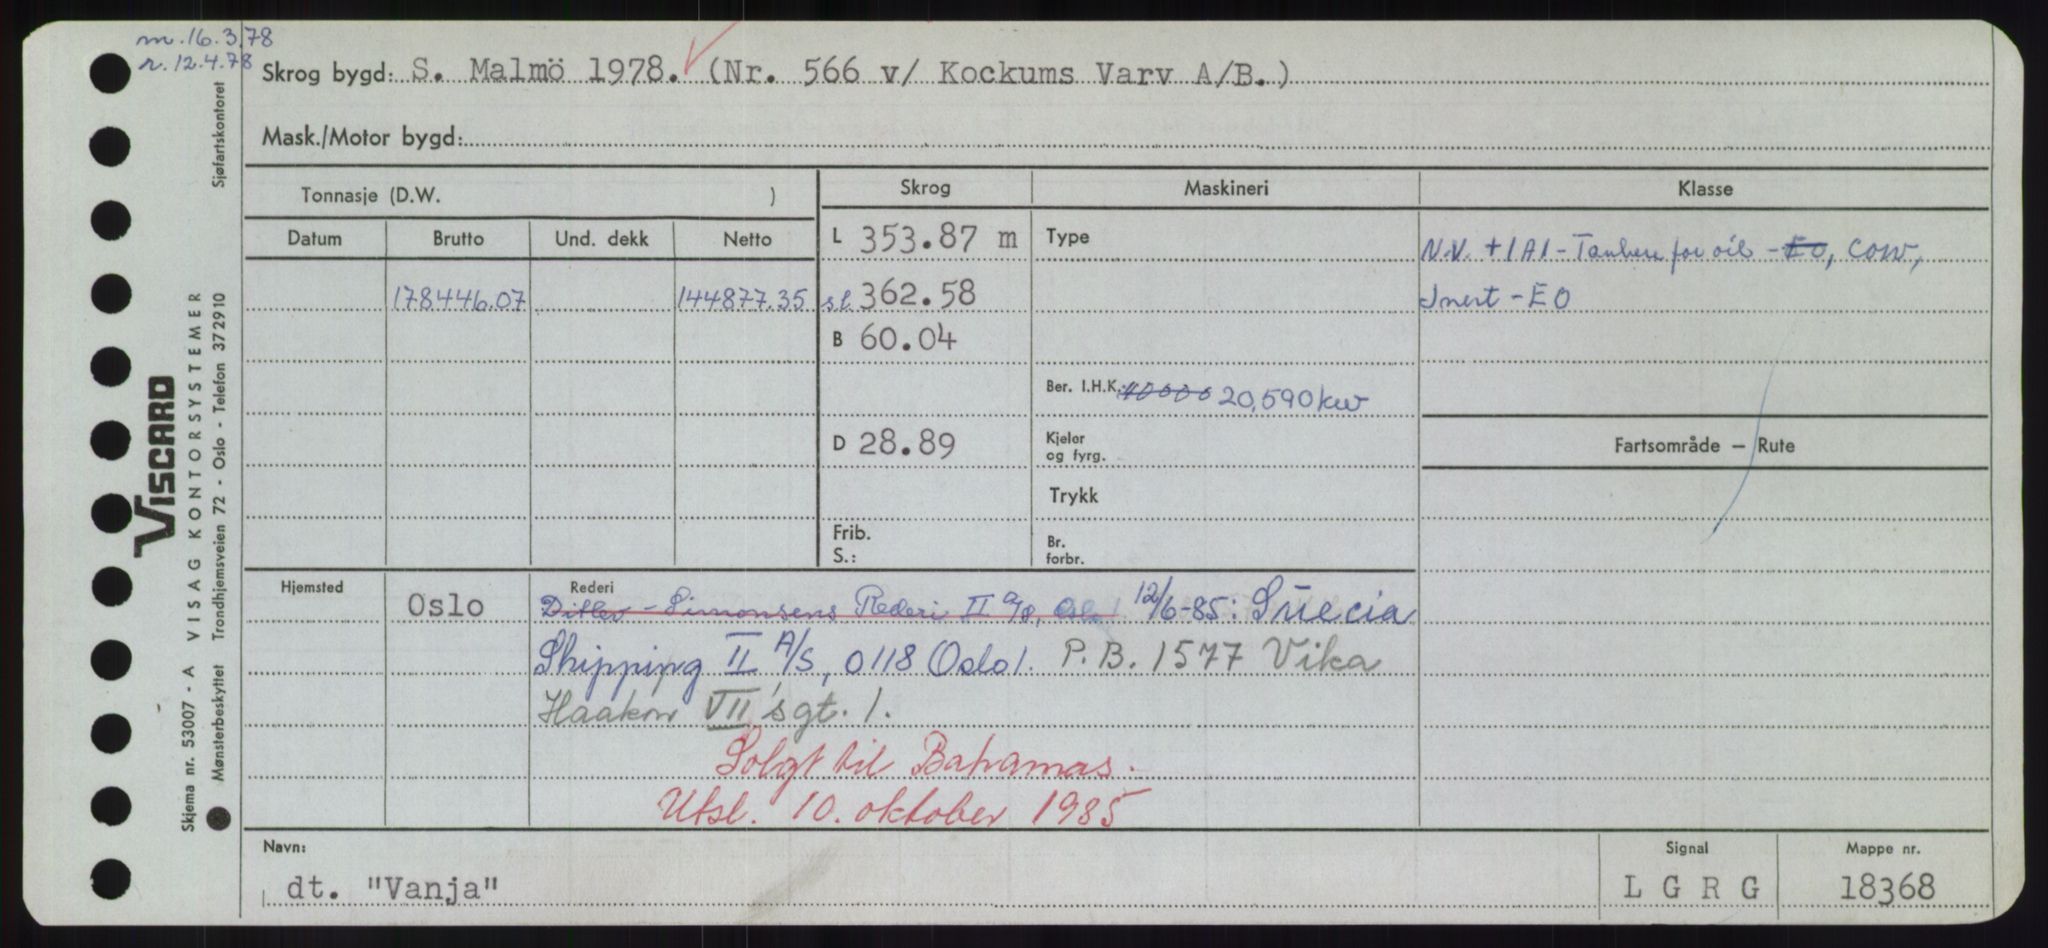 m. 16.3.78
r. 12.4.78
Skrog bygd: S. Malmö 1978. (Nr. 566 v/ Kockums Varv A/B.)
Mask./Motor bygd:
Tonnasje (D.W. )
Skrog Maskineri Klasse
Datum Brutto Und. dekk Netto
L 353.87 m Type N.V. +1A1 - Tanker for oil - EO, COW,
178446.07 144877.35 s.l. 362.58 Inert - EO
B 60.04
Ber. I.H.K. 40000 20,590 kw
D 28.89 Kjeler og fyrg. Fartsområde — Rute
Trykk
Frib. S.: Br. forbr.
Hjemsted Oslo Rederi Ditlev-Simonsens Rederi II a/s, Oslo 1. 12/6-85: Suecia
Shipping II A/S, 0118 Oslo 1. P.B. 1577 Vika
Haakon VII's gt. 1.
Solgt til Bahamas.
Utsl. 10. oktober 1985
Navn: Signal Mappe nr.
dt. "Vanja" L G R G 18368
VISCARD
Skjema nr. 53007 - A VISAG KONTORSYSTEMER
Mønsterbeskyttet Trondhjemsveien 72 - Oslo - Telefon 372910 Sjøfartskontoret